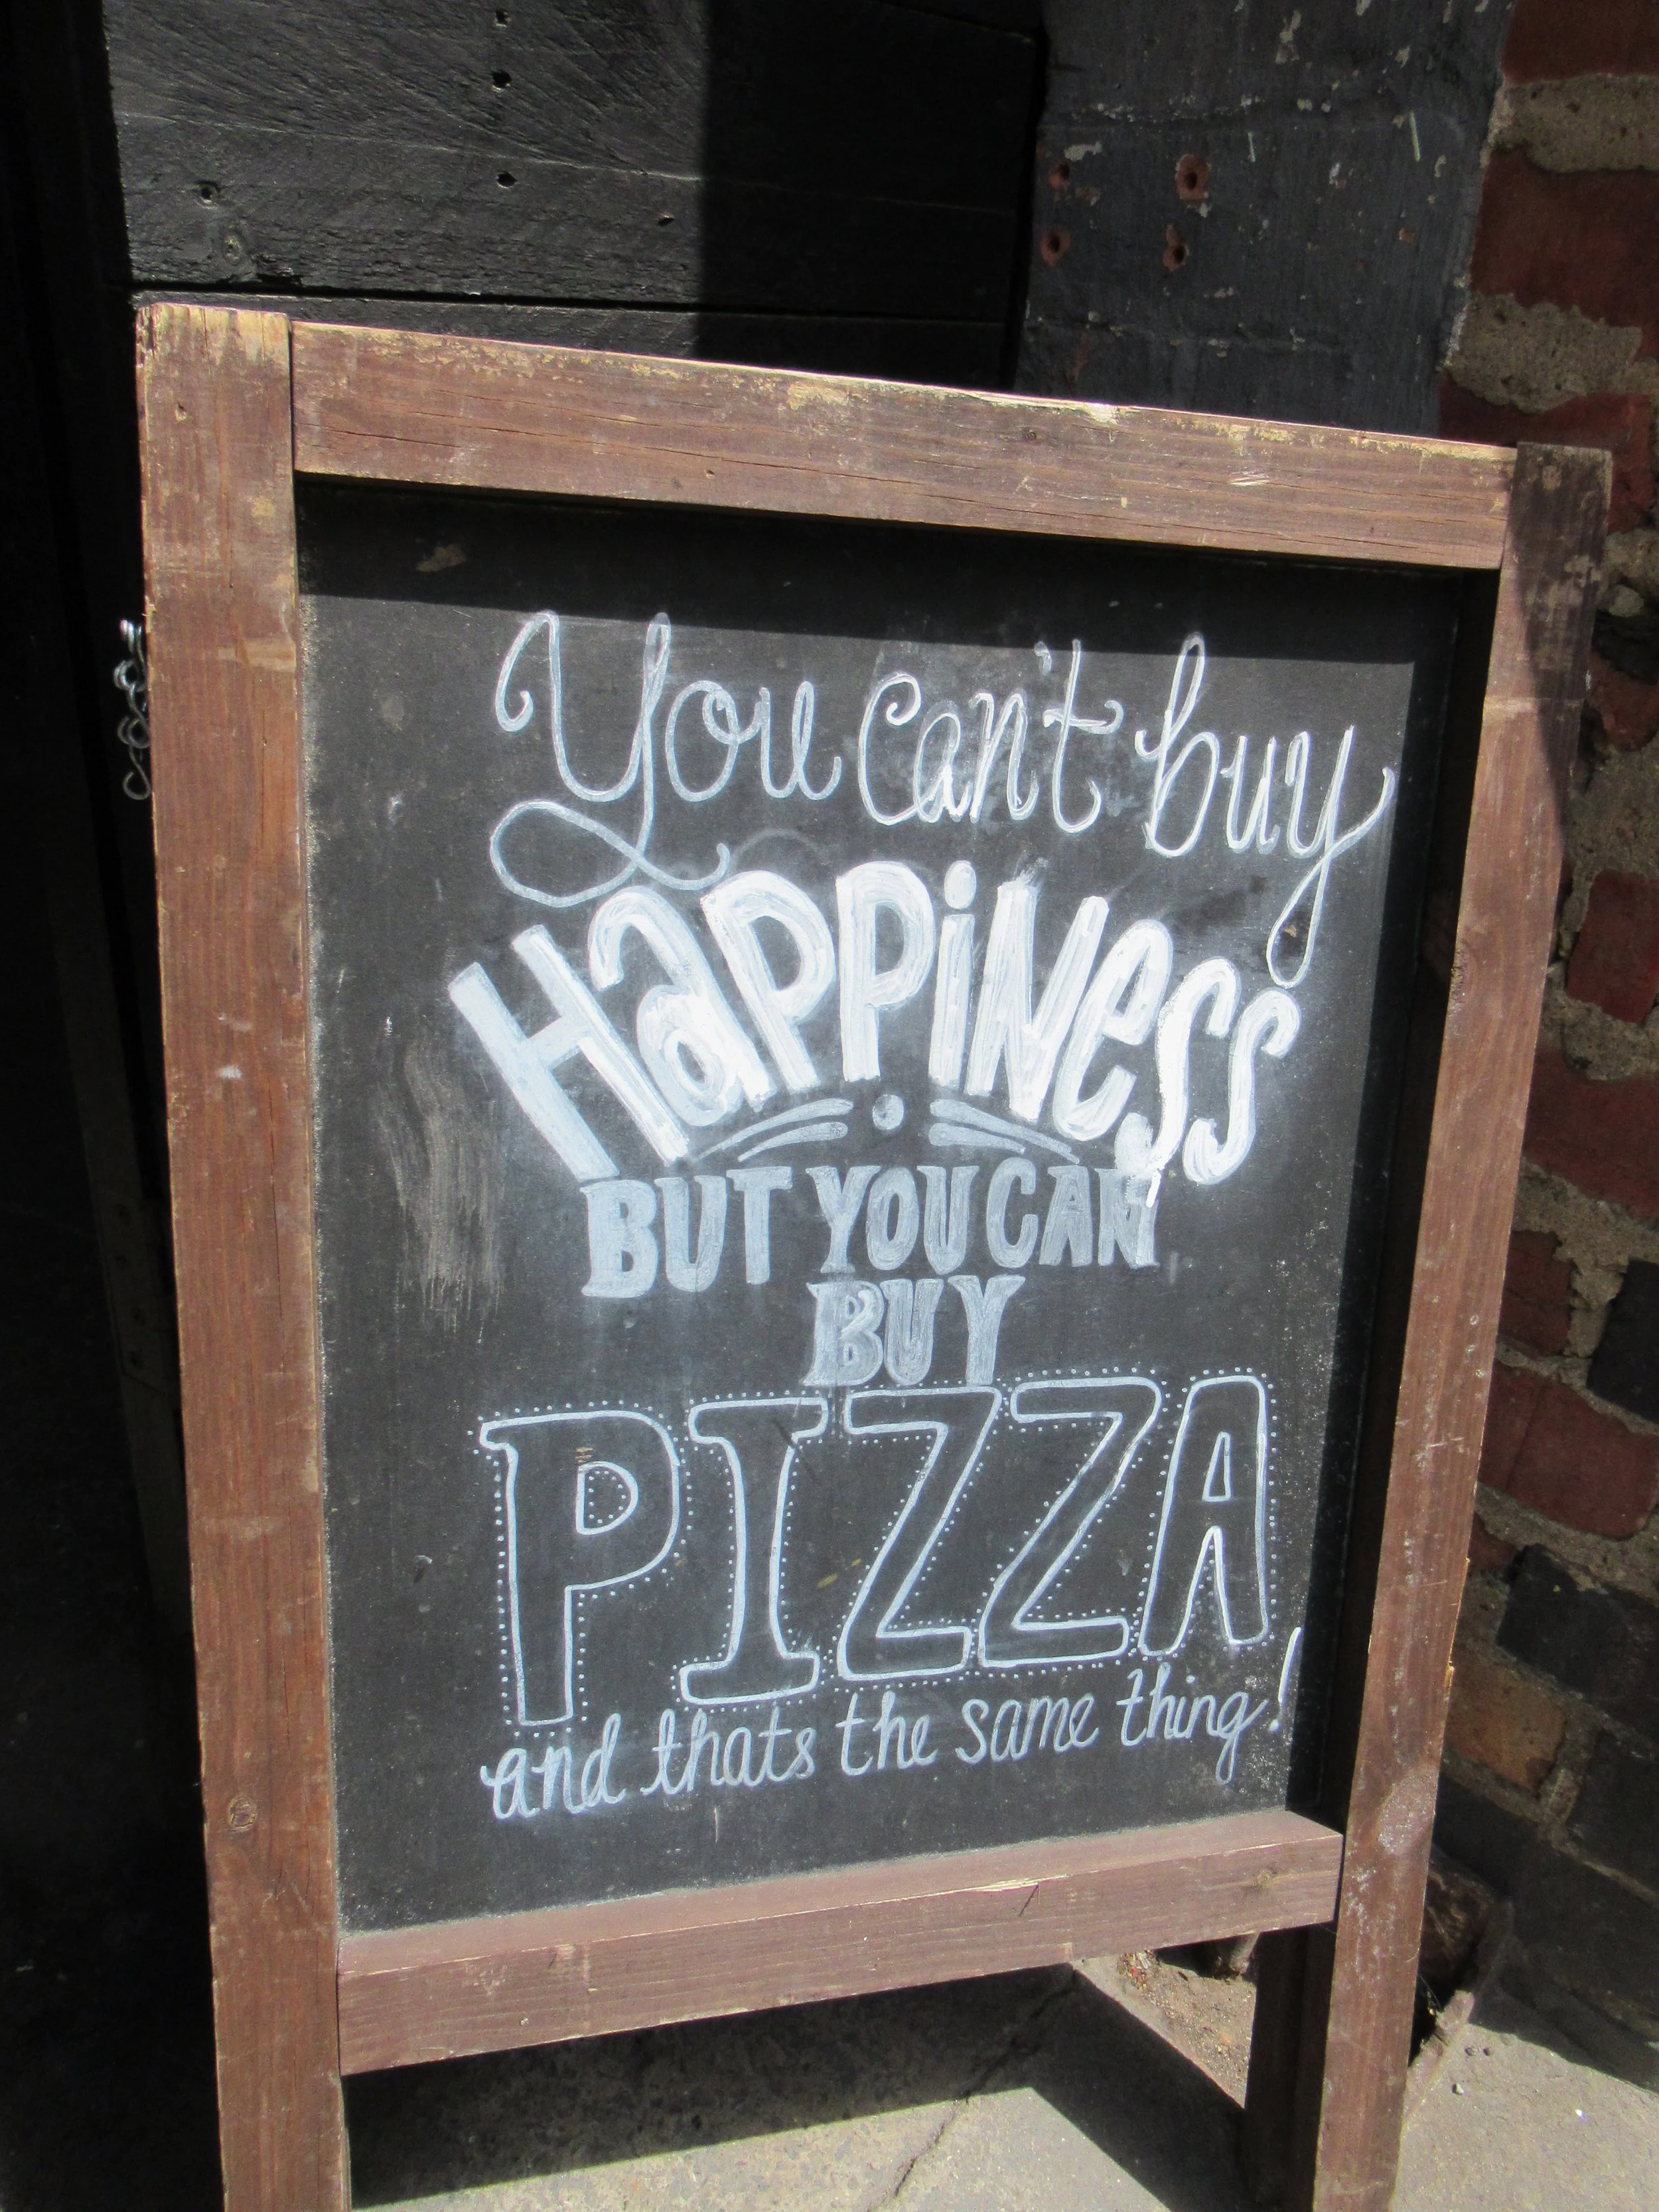 You can't buy
HaPPiNess
BUT YOU CAN
BUY
PIZZA
and thats the same thing!